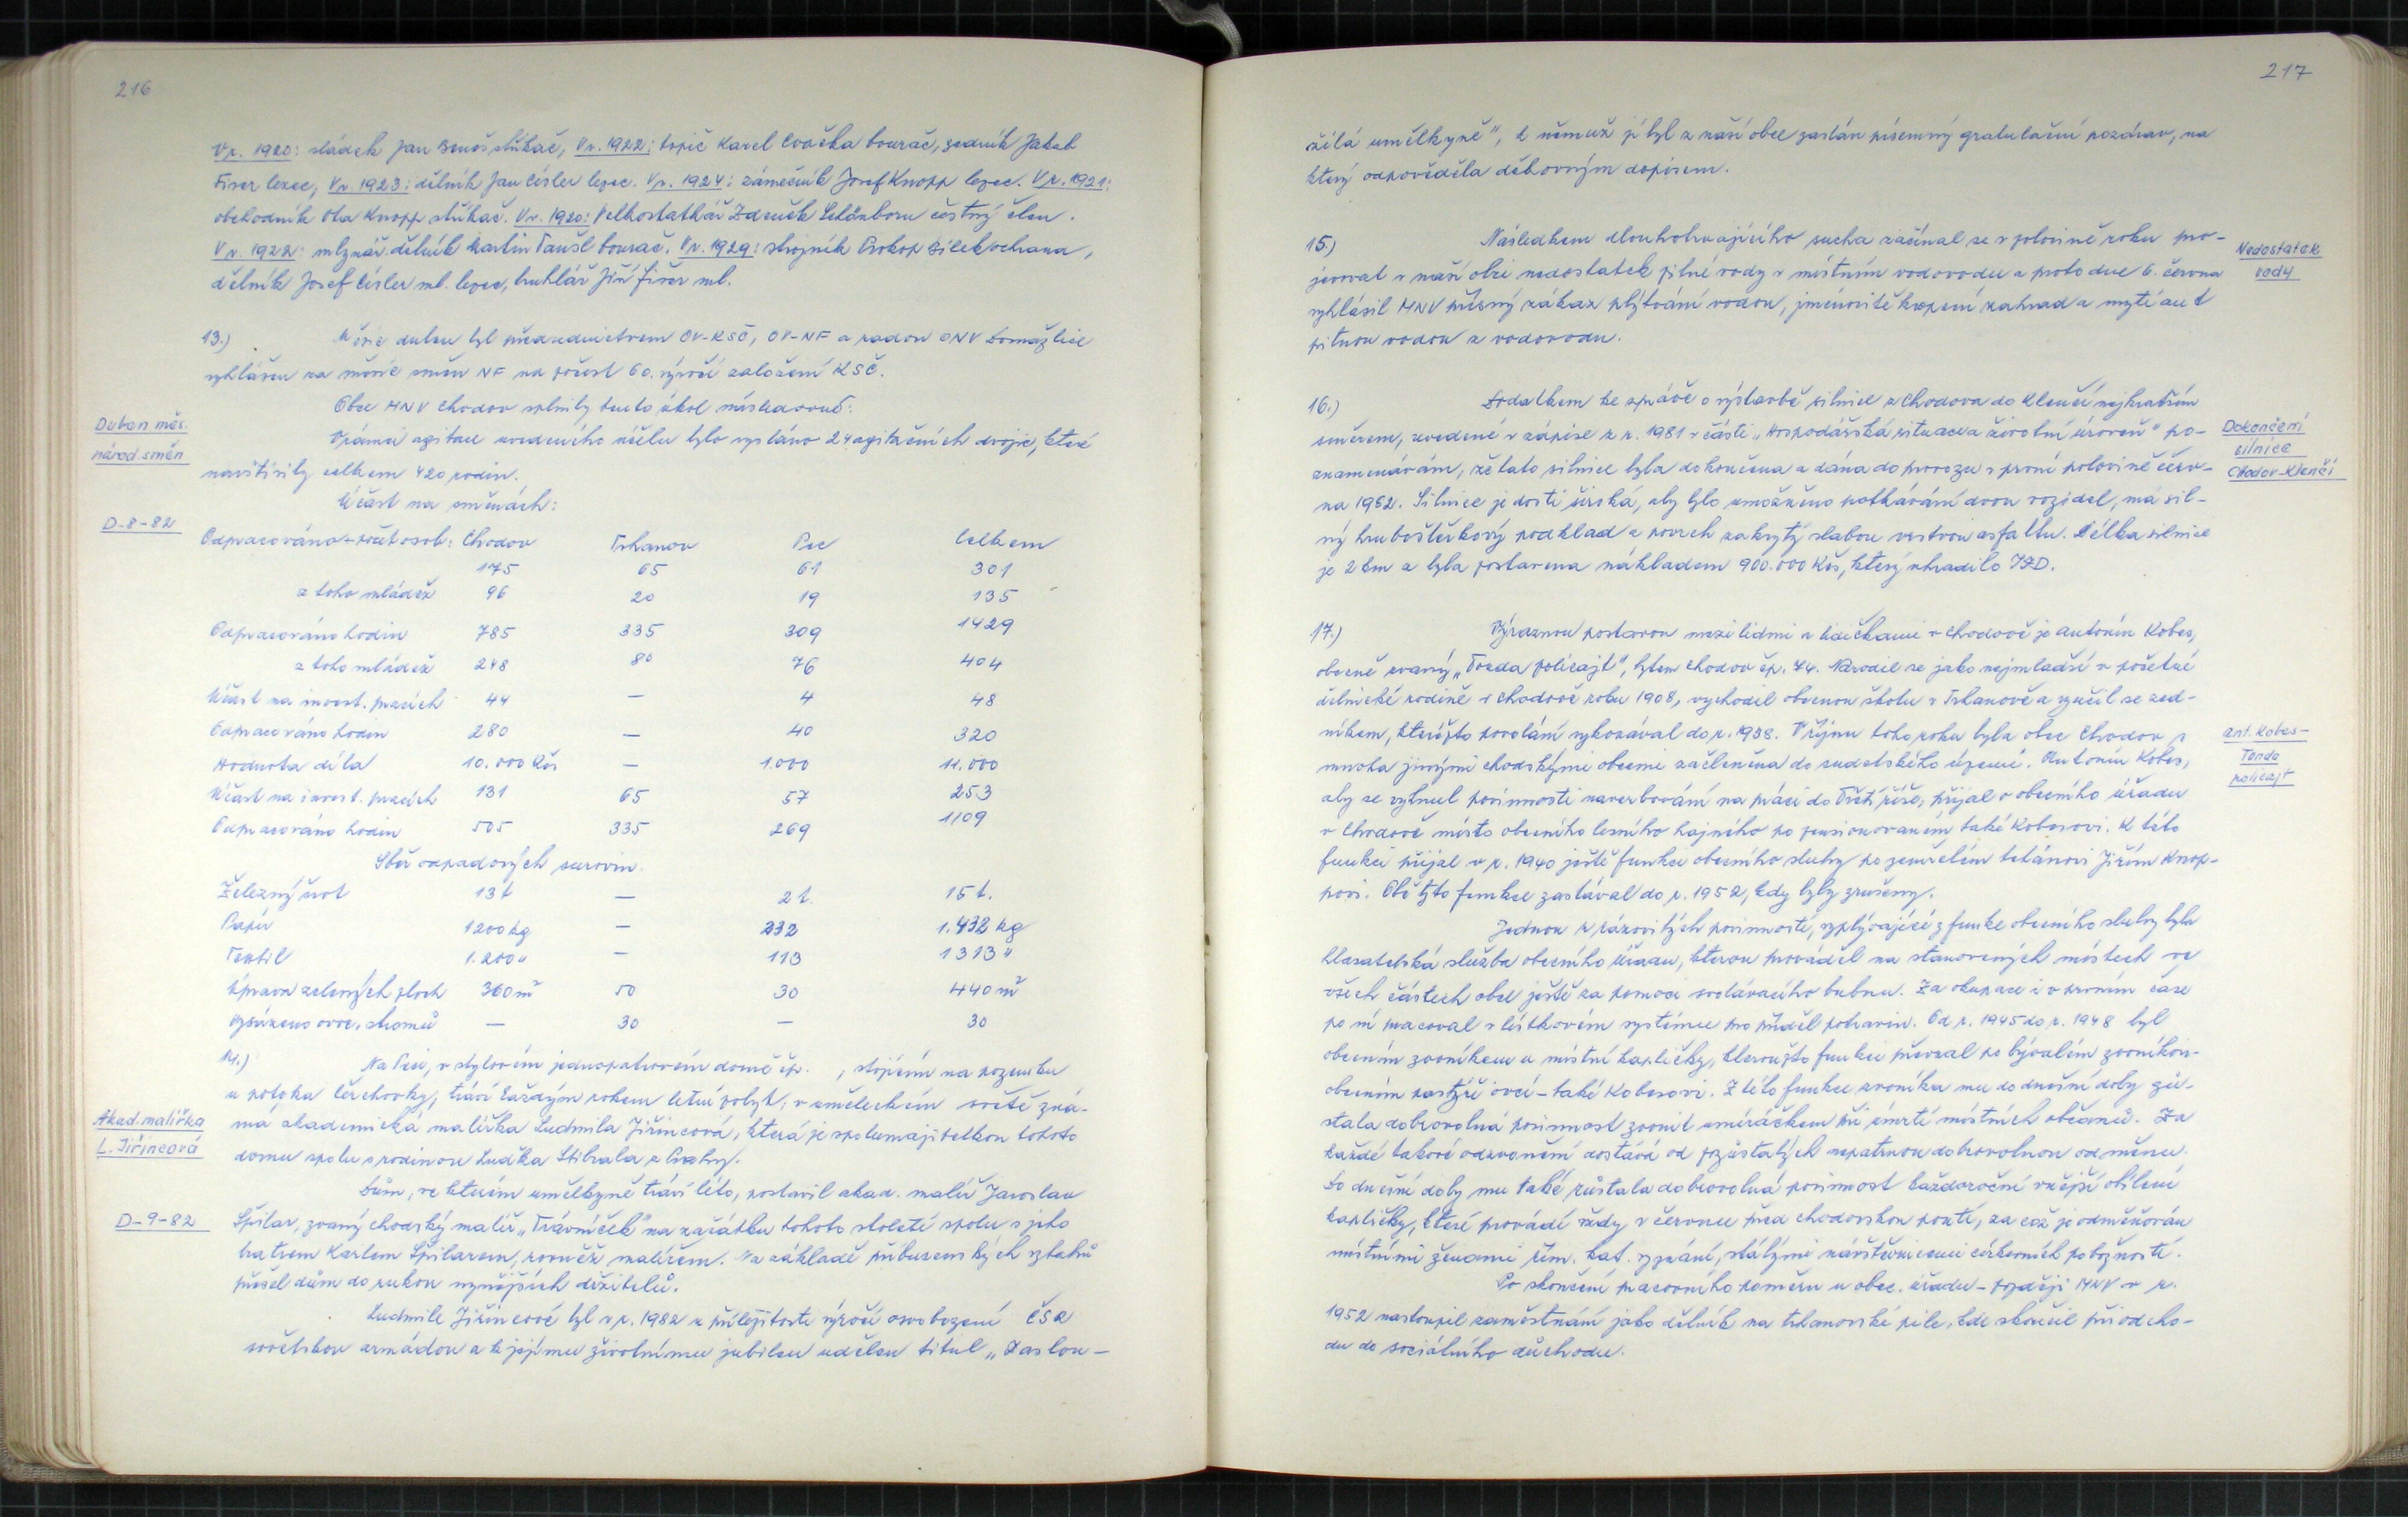 216
V r. 1920: sládek Jan Beneš stříkač, V r. 1922: topič Karel Cvačka bourač, zedník Jakab
Fiser lezec, V r. 1923: dělník Jan Císler lezec. V r. 1924: zámečník Josef Knopp lezec. V r. 1921:
obchodník Ota Knopp stříkač. V r. 1920: Velkostatkář Zdeněk Schönborn čestný člen.
V r. 1922: mlynář. dělník Martin Taušl bourač. V r. 1929: strojník Prokop Bílek ochrana,
dělník Josef Císler ml. lezec, truhlář Jiří Fiser ml.
13.) Měsíc duben byl předsednictvem OV-KSČ, OV-NF a radou ONV Domažlice
vyhlášen za měsíc směn NF na počest 60. výročí založení KSČ.
Obce MNV Chodov splnily tento úkol následovně:
Duben měs.
národ. směn
V rámci agitace uvedeného účelu bylo vysláno 24 agitačních dvojic, které
navštívily celkem 420 rodin.
Účast na směnách:
D-8-82
Odpracováno-počet osob: Chodov Trhanov Pec Celkem
175 65 61 301
z toho mládež 96 20 19 135
Odpracováno hodin 785 335 309 1429
z toho mládež 248 80 76 404
Účast na invest. pracích 44 — 4 48
Odpracováno hodin 280 — 40 320
Hodnota díla 10.000 Kčs — 1.000 11.000
Účast na invest. pracích 131 65 57 253
Odpracováno hodin 505 335 269 1109
Sběr odpadových surovin.
Železný šrot 13 t — 2 t. 15 t.
Papír 1200 kg — 232 1.432 kg
Textil 1.200 " — 113 1313 "
Úprava zelených ploch 360 m² 50 30 440 m²
Vysázeno ovoc. stromů — 30 — 30
14.) Na Peci, v stylovém jednopatrovém domě čp. , stojícím na pozemku
u potoka Čerchovky, tráví každým rokem letní pobyt, v uměleckém světě zná-
Akad. malířka
L. Jiřincová
má akademická malířka Ludmila Jiřincová, která je spolumajitelkou tohoto
domu spolu s rodinou Luďka Stibrala z Prahy.
Dům, ve kterém umělkyně tráví léto, postavil akad. malíř Jaroslav
D-9-82
Špilar, zvaný chodský malíř „Trávníček" na začátku tohoto století spolu s jeho
bratrem Karlem Špilarem, rovněž malířem. Na základě příbuzenských vztahů
přešel dům do rukou nynějších držitelů.
Ludmile Jiřincové byl v r. 1982 u příležitosti výročí osvobození ČSR
sovětskou armádou a k jejímu životnímu jubileu udělen titul „Zaslou-
217
žilá umělkyně", k němuž jí byl z naší obce zaslán písemný gratulační pozdrav, na
který odpověděla děkovným dopisem.
15.) Následkem dlouhotrvajícího sucha začínal se v polovině roku pro-
Nedostatek
vody
jevovat v naší obci nedostatek pitné vody v místním vodovodu a proto dne 6. června
vyhlásil MNV přísný zákaz plýtvání vodou, jmenovitě kropení zahrad a mytí aut
pitnou vodou z vodovodu.
16.) Dodatkem ke zprávě o výstavbě silnice z Chodova do Klenčí nejkratším
Dokončení
silnice
Chodov-Klenčí
směrem, uvedené v zápise z r. 1981 v části „Hospodářská situace a životní úroveň" po-
znamenávám, že tato silnice byla dokončena a dána do provozu v první polovině červ-
na 1982. Silnice je dosti široká, aby bylo umožněno potkávání dvou vozidel, má sil-
ný hruboštěrkový podklad a povrch zakrytý slabou vrstvou asfaltu. Délka silnice
je 2 km a byla postavena nákladem 900.000 Kčs, který uhradilo JZD.
17.) Výraznou postavou mezi lidmi a lidičkami v Chodově je Antonín Kobes,
obecně zvaný „Tonda policajt", bytem Chodov čp. 74. Narodil se jako nejmladší v početné
dělnické rodině v Chodově roku 1908, vychodil obecnou školu v Trhanově a vyučil se zed-
níkem, kteréžto povolání vykonával do r. 1938. V říjnu toho roku byla obec Chodov s
Ant. Kobes-
Tonda
policajt
mnoha jinými chodskými obcemi začleněna do sudetského území. Antonín Kobes,
aby se vyhnul povinnosti naverbování na práci do Třetí říše, přijal v obecního úřadu
v Chodově místo obecního lesního hajného po pensionovaném také Kobesovi. K této
funkci přijal v r. 1940 ještě funkci obecního sluhy po zemřelém tetánovi Jiřím Knop-
povi. Obě tyto funkce zastával do r. 1952, kdy byly zrušeny.
Jednou z rázovitých povinností, vyplývající z funkce obecního sluhy byla
hlasatelská služba obecního úřadu, kterou prováděl na stanovených místech ve
všech částech obce ještě za pomoci svolávacího bubnu. Za okupace i v prvním čase
po ní pracoval v lístkovém systému pro příděl potravin. Od r. 1945 do r. 1948 byl
obecním zvoníkem u místní kapličky, kteroužto funkci převzal po bývalém zvoníkovi-
obecním pastýři ovcí-také Kobesovi. Z této funkce zvoníka mu do dnešní doby zů-
stala dobrovolná povinnost zvonit umíráčkem při úmrtí místních občanů. Za
každé takové odzvonění dostává od pozůstalých nepatrnou dobrovolnou odměnu.
Do dnešní doby mu také zůstala dobrovolná povinnost každoroční vnější obílení
kapličky, které provádí vždy v červnu před chodovskou poutí, za což je odměňován
místními ženami řím. kat. vyznání, stálými návštěvnicemi církevních pobožností.
Po skončení pracovního poměru u obec. úřadu - později MNV v r.
1952 nastoupil zaměstnání jako dělník na trhanovské pile, kde skončil při odcho-
du do sociálního důchodu.